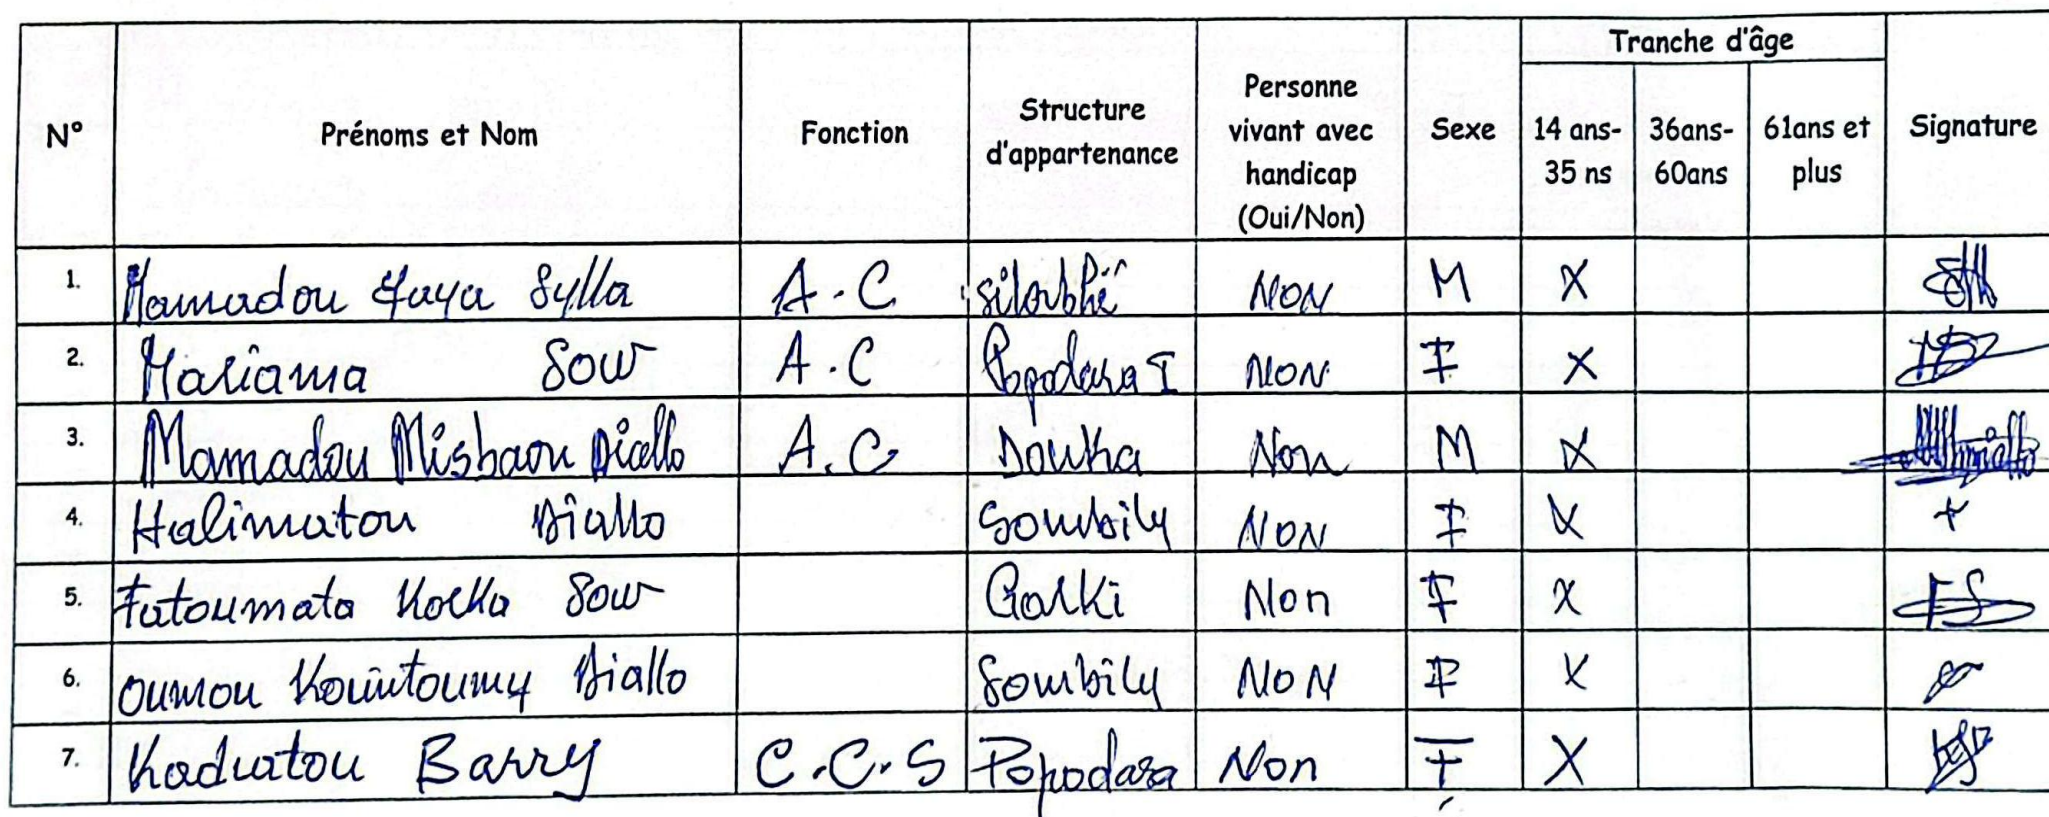 N° Prénoms et Nom Fonction Structure d'appartenance Personne vivant avec handicap (Oui/Non) Sexe Tranche d'âge 14 ans-35 ns 36ans-60ans 61ans et plus Signature
1. Mamadou Yaya Sylla A.C Siloubhé NON M X
2. Mariama Sow A.C Popodara I NON F X
3. Mamadou Misbaou Diallo A.C Douka Non M X
4. Halimatou Diallo Sombily NON F X +
5. Fatoumata Korka Sow Garki Non F X FS
6. Oumou Kountoumy Diallo Sombily NON F X
7. Kadiatou Barry C.C.S Popodara Non F X